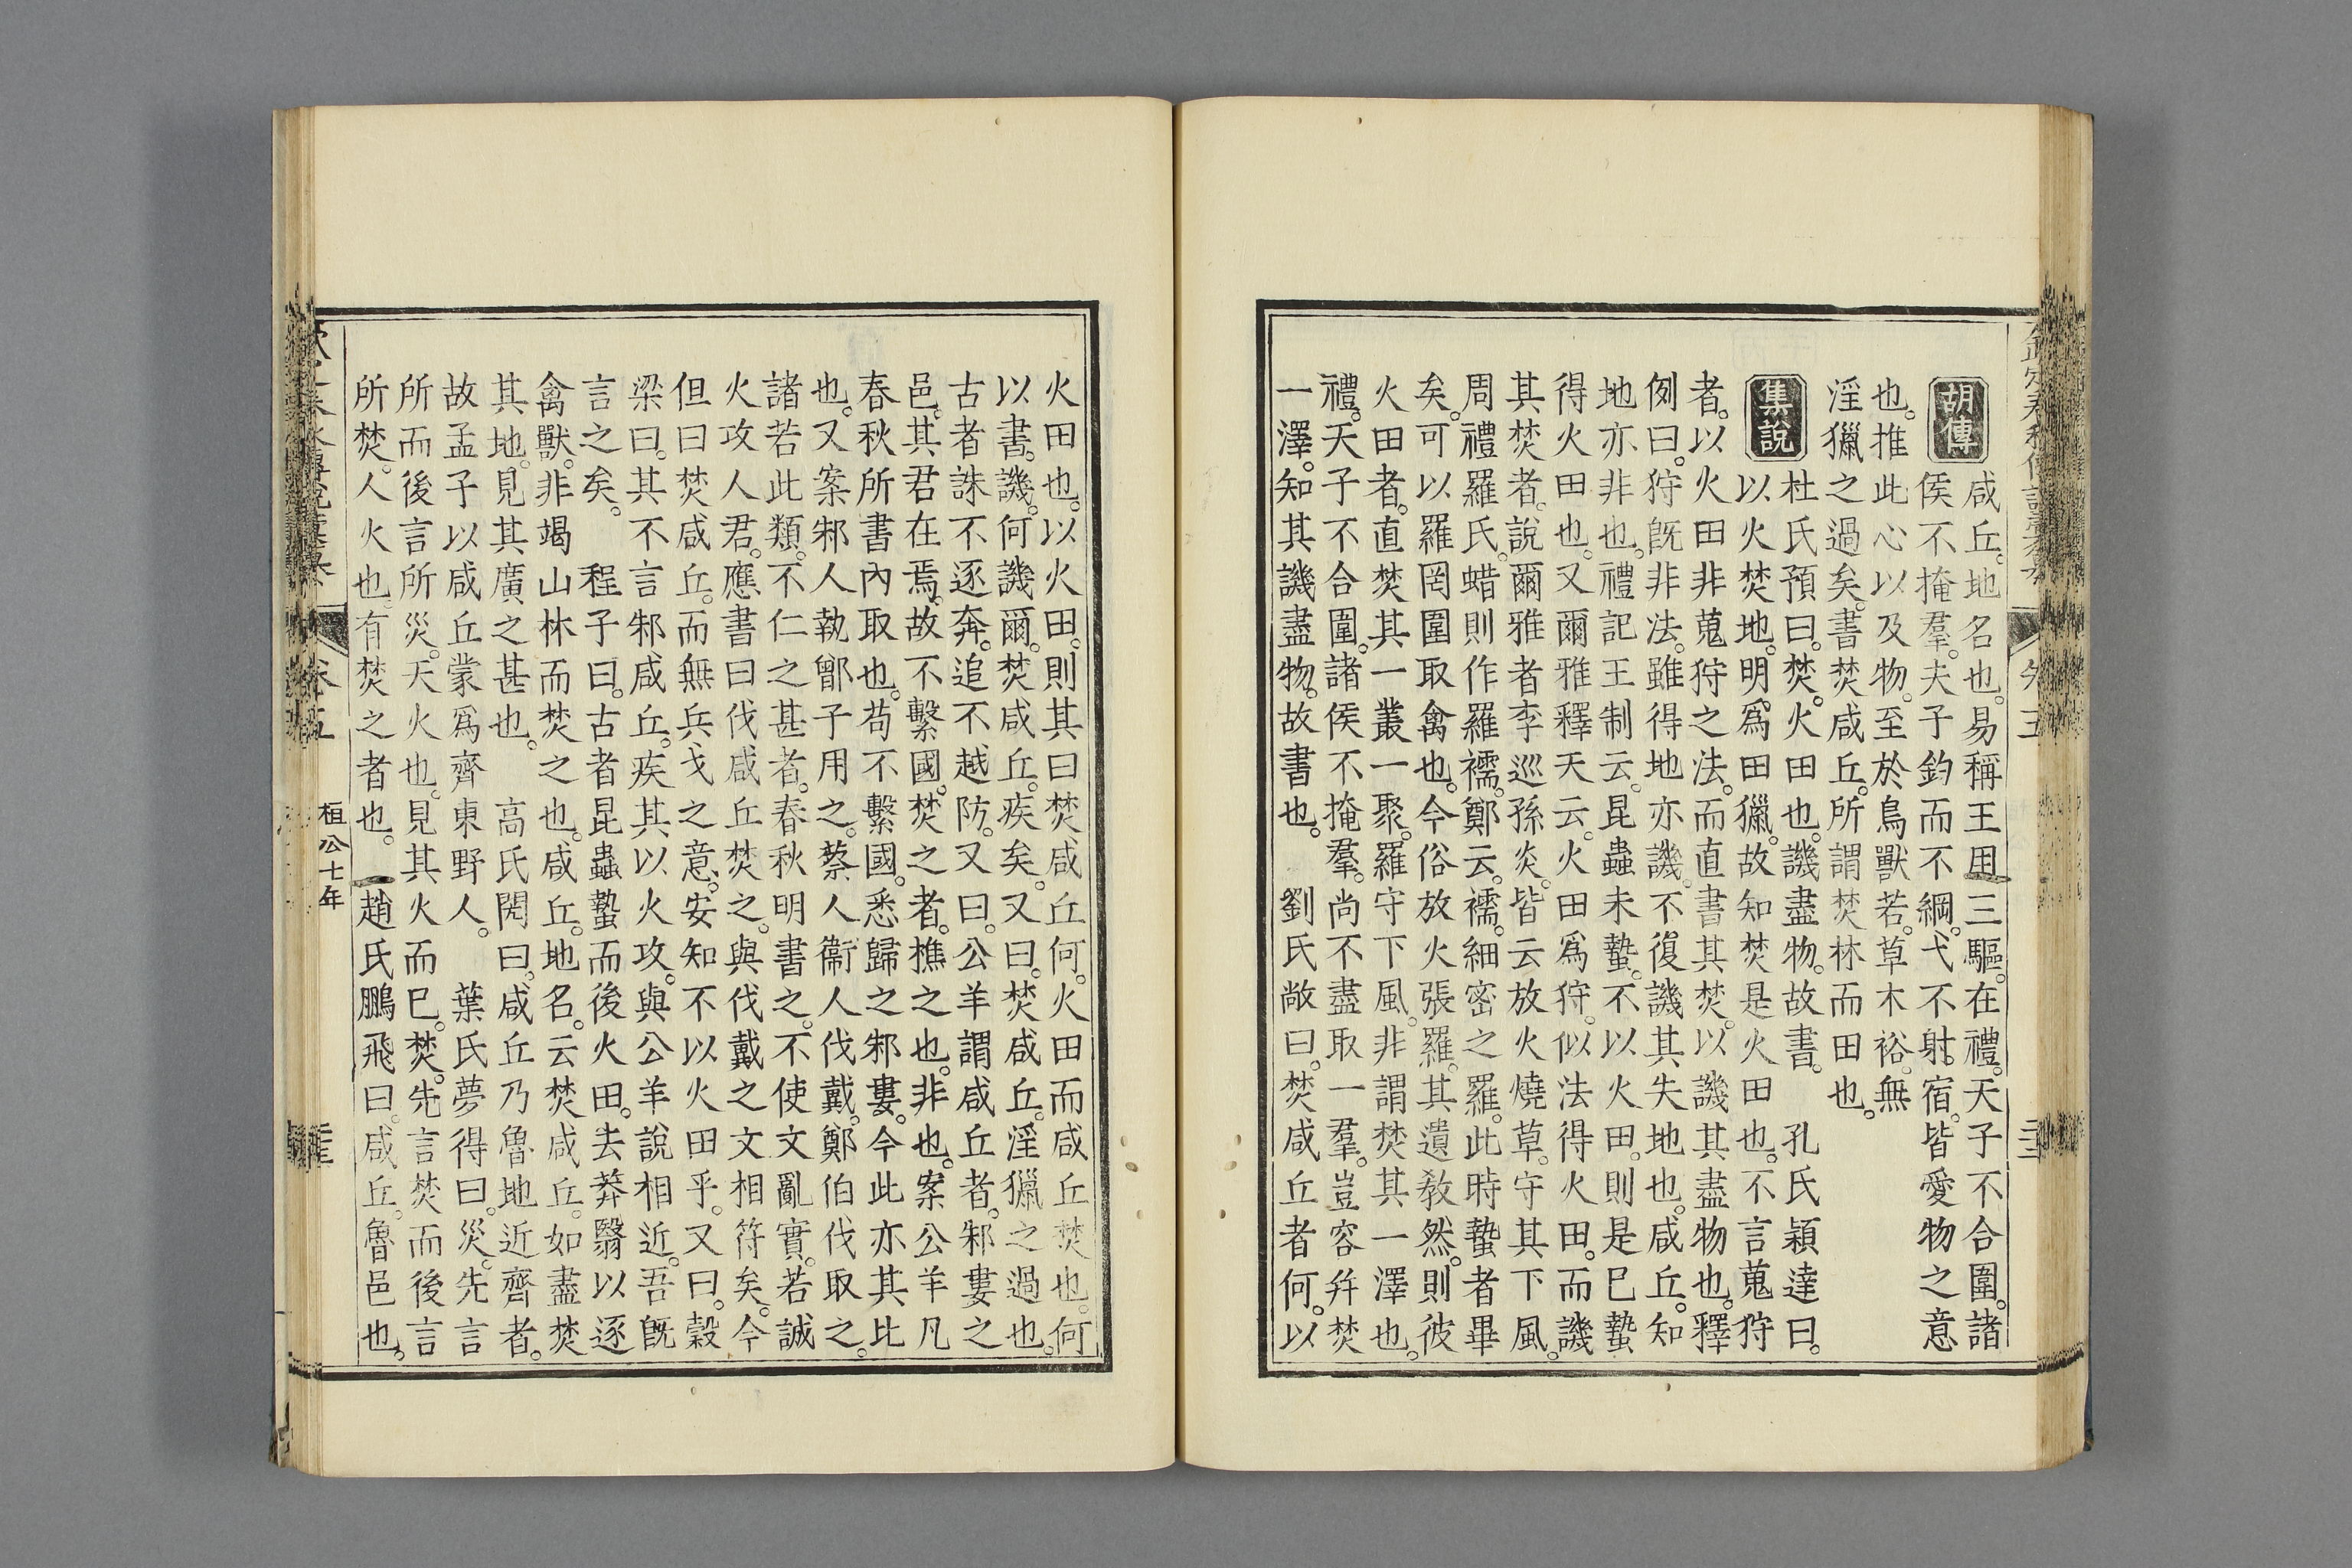 胡傳
咸丘。地名也。易稱王用三驅。在禮。天子不合圍。諸
侯不掩羣。夫子釣而不綱。弋不射宿。皆愛物之意
也。推此心以及物。至於鳥獸若。草木裕。無
淫獵之過矣。書焚咸丘。所謂焚林而田也。
集說
杜氏預曰。焚。火田也。譏盡物。故書。 孔氏穎達曰。
以火焚地。明爲田獵。故知焚是火田也。不言蒐狩
者。以火田非蒐狩之法。而直書其焚。以譏其盡物也。釋
例曰。狩旣非法。雖得地亦譏。不復譏其失地也。咸丘。知
地亦非也。禮記王制云。昆蟲未蟄。不以火田。則是巳蟄
得火田也。又爾雅釋天云。火田爲狩。似法得火田。而譏
其焚者。說爾雅者李巡孫炎。皆云放火燒草。守其下風。
周禮羅氏。蜡則作羅襦。鄭云。襦。細密之羅。此時蟄者畢
矣。可以羅罔圍取禽也。今俗放火張羅。其遺敎然。則彼
火田者。直焚其一叢一聚。羅守下風。非謂焚其一澤也。
禮。天子不合圍。諸侯不掩羣。尚不盡取一羣。豈容并焚
一澤。知其譏盡物。故書也。 劉氏敞曰。焚咸丘者何。以
火田也。以火田。則其曰焚咸丘何。火田而咸丘焚也。何
以書。譏。何譏爾。焚咸丘。疾矣。又曰。焚咸丘。淫獵之過也。
古者誅不逐奔。追不越防。又曰。公羊謂咸丘者。邾婁之
邑。其君在焉。故不繫國。焚之者。樵之也。非也。案公羊凡
春秋所書內取也。苟不繫國。悉歸之邾婁。今此亦其比
也。又案邾人執鄫子用之。蔡人衞人伐戴。鄭伯伐取之。
諸若此類。不仁之甚者。春秋明書之。不使文亂實。若誠
火攻人君。應書曰伐咸丘焚之。與伐戴之文相符矣。今
但曰焚咸丘。而無兵戈之意。安知不以火田乎。又曰。穀
梁曰。其不言邾咸丘。疾其以火攻。與公羊說相近。吾旣
言之矣。 程子曰。古者昆蟲蟄而後火田。去莽翳以逐
禽獸。非竭山林而焚之也。咸丘。地名。云焚咸丘。如盡焚
其地。見其廣之甚也。 高氏閌曰。咸丘乃魯地近齊者。
故孟子以咸丘蒙爲齊東野人。 葉氏夢得曰。災。先言
所而後言所災。天火也。見其火而巳。焚。先言焚而後言
所焚。人火也。有焚之者也。 趙氏鵬飛曰。咸丘。魯邑也。
桓公七年